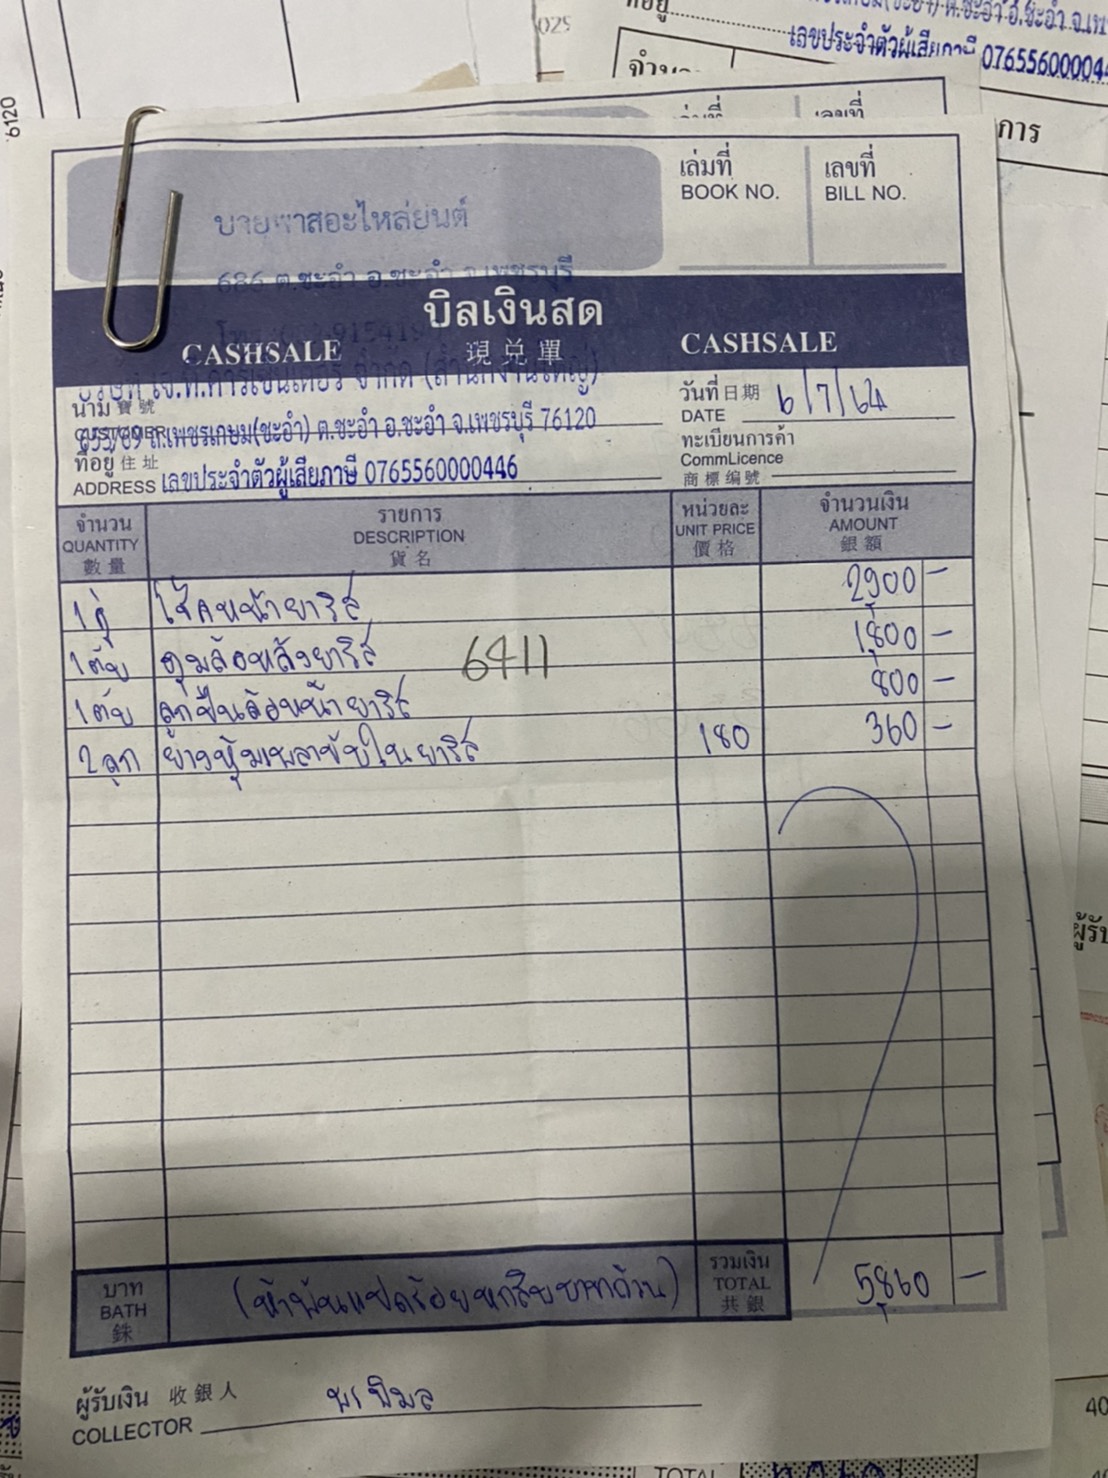 6120
029
ที่อยู่
ต.ชะอำ อ.ชะอำ จ.เพ
เลขประจำตัวผู้เสียภาษี 076556000044
จำนวน
การ
เล่มที่
เลขที่
BOOK NO.
BILL NO.
บายพาสอะไหล่ยนต์
686 ต.ชะอำ อ.ชะอำ จ.เพชรบุรี
บิลเงินสด
CASHSALE 現兑單 CASHSALE
บริษัท เจ.ที.คาร์เซ็นเตอร์ จำกัด (สำนักงานใหญ่)
นาม 寶號
CUSTOMER
655/89 ถ.เพชรเกษม(ชะอำ) ต.ชะอำ อ.ชะอำ จ.เพชรบุรี 76120
ที่อยู่ 住址
ADDRESS เลขประจำตัวผู้เสียภาษี 0765560000446
วันที่ 日期
DATE 6/7/64
ทะเบียนการค้า
CommLicence
商標編號
จำนวน รายการ หน่วยละ จำนวนเงิน
QUANTITY DESCRIPTION UNIT PRICE AMOUNT
數量 貨名 價格 銀額
1คู่ โช้คหน้ายาริส 2900 –
1ตับ ดุมล้อหลังยาริส 1,800 –
6411
1ตับ ลูกปืนล้อหน้ายาริส 800 –
2ลูก ยางหุ้มเพลาขับในยาริส 180 360 –
บาท
BATH
銖
(ห้าพันแปดร้อยหกสิบบาทถ้วน)
รวมเงิน
TOTAL
共銀
5,860 –
ผู้รับเงิน 收銀人
COLLECTOR พรพิมล
ผู้รับ
40
TOTAL